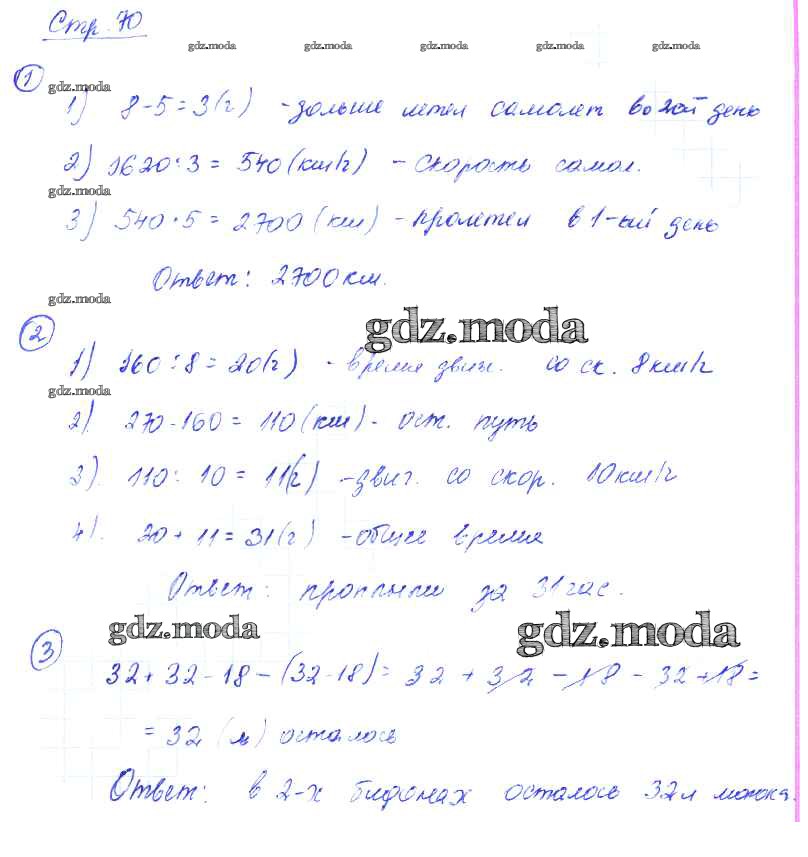 Стр. 70
gdz.moda gdz.moda gdz.moda gdz.moda gdz.moda
1
gdz.moda
1) 8-5=3(ч) - дольше летел самолет во 2ой день
2) 1620:3 = 540 (км/ч) - скорость самол.
gdz.moda
3) 540·5 = 2700 (км) - пролетел в 1-ый день
Ответ: 2700 км.
gdz.moda
2
gdz.moda
1) 160:8=20(ч) - время движ. со ск. 8км/ч
gdz.moda
2). 270-160 = 110 (км) - ост. путь
3). 110: 10 = 11(ч) - двиг. со скор. 10км/ч
4). 20 + 11 = 31(ч) - общее время
Ответ: проплыли за 31 час.
gdz.moda gdz.moda
3
32 + 32 - 18 - (32-18) = 32 + 32 - 18 - 32 + 18 =
= 32 (л) осталось
Ответ: в 2-х бидонах осталось 32л молока.